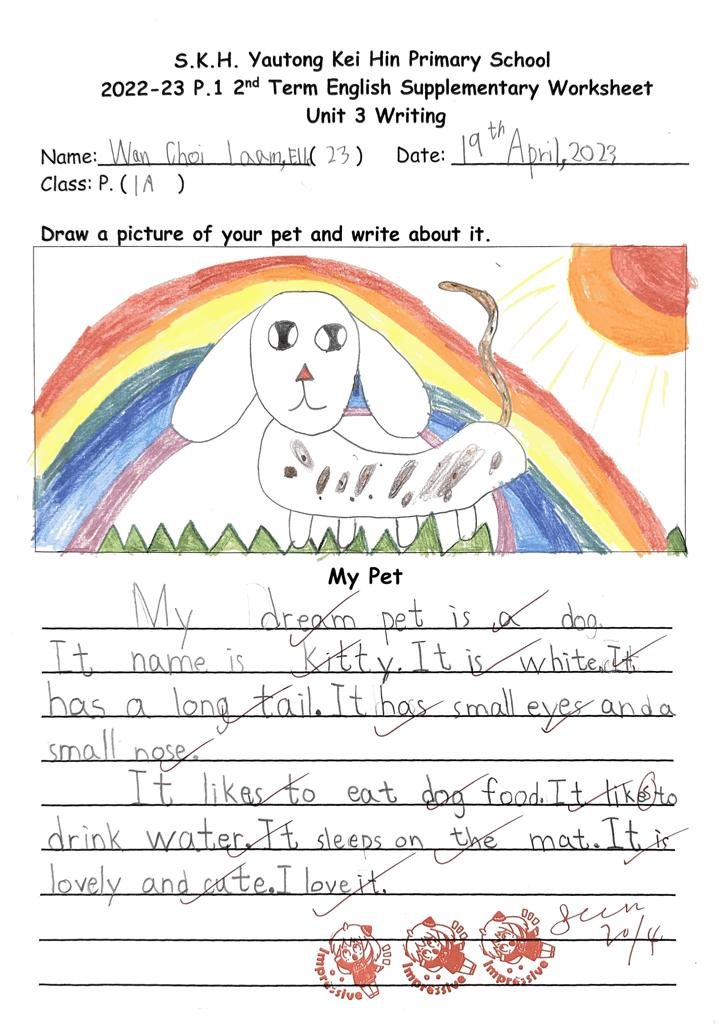 S.K.H. Yautong Kei Hin Primary School
2022-23 P.1 2nd Term English Supplementary Worksheet
Unit 3 Writing
Name: Wan Choi Laam, Ell (23) Date: 19th April, 2023
Class: P. (1A)
Draw a picture of your pet and write about it.
My Pet
My dream pet is a dog.
It name is Kitty. It is white. It
has a long tail. It has small eyes and a
small nose.
It likes to eat dog food. It likes to
drink water. It sleeps on the mat. It is
lovely and cute. I love it.
Seen
20/4
Impressive Impressive Impressive